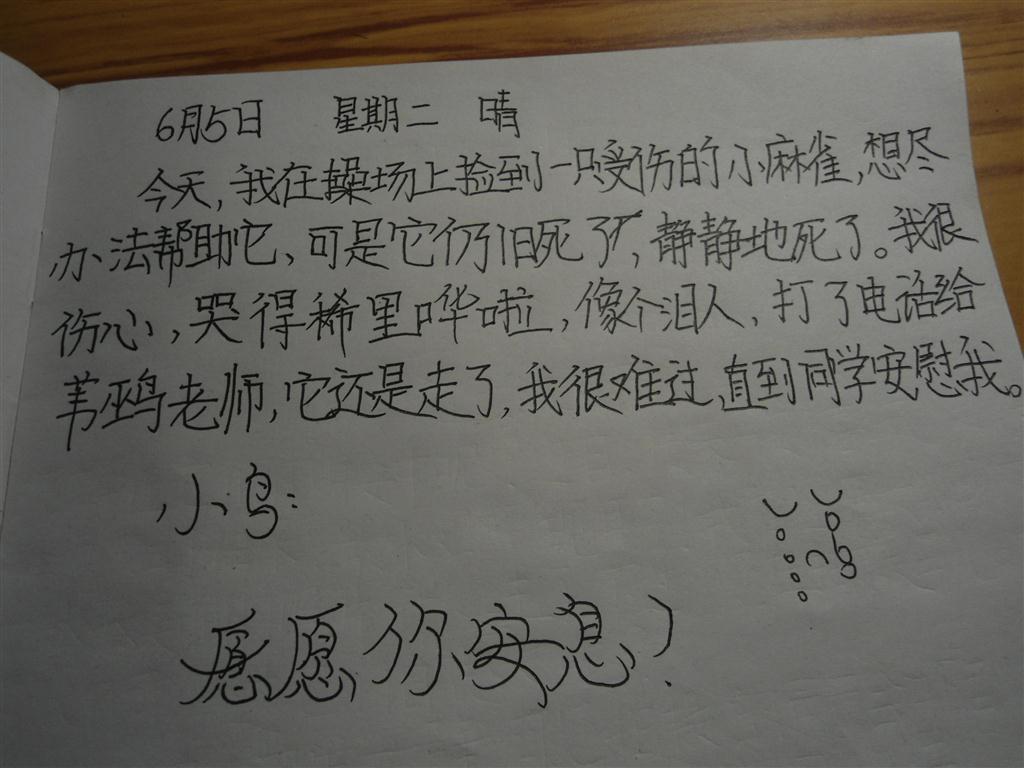 6月5日 星期二 晴
今天,我在操场上捡到一只受伤的小麻雀,想尽
办法帮助它,可是它仍旧死了,静静地死了。我很
伤心,哭得稀里哗啦,像个泪人,打了电话给
苇鸡老师,它还是走了,我很难过,直到同学安慰我。
小鸟:
愿你安息!